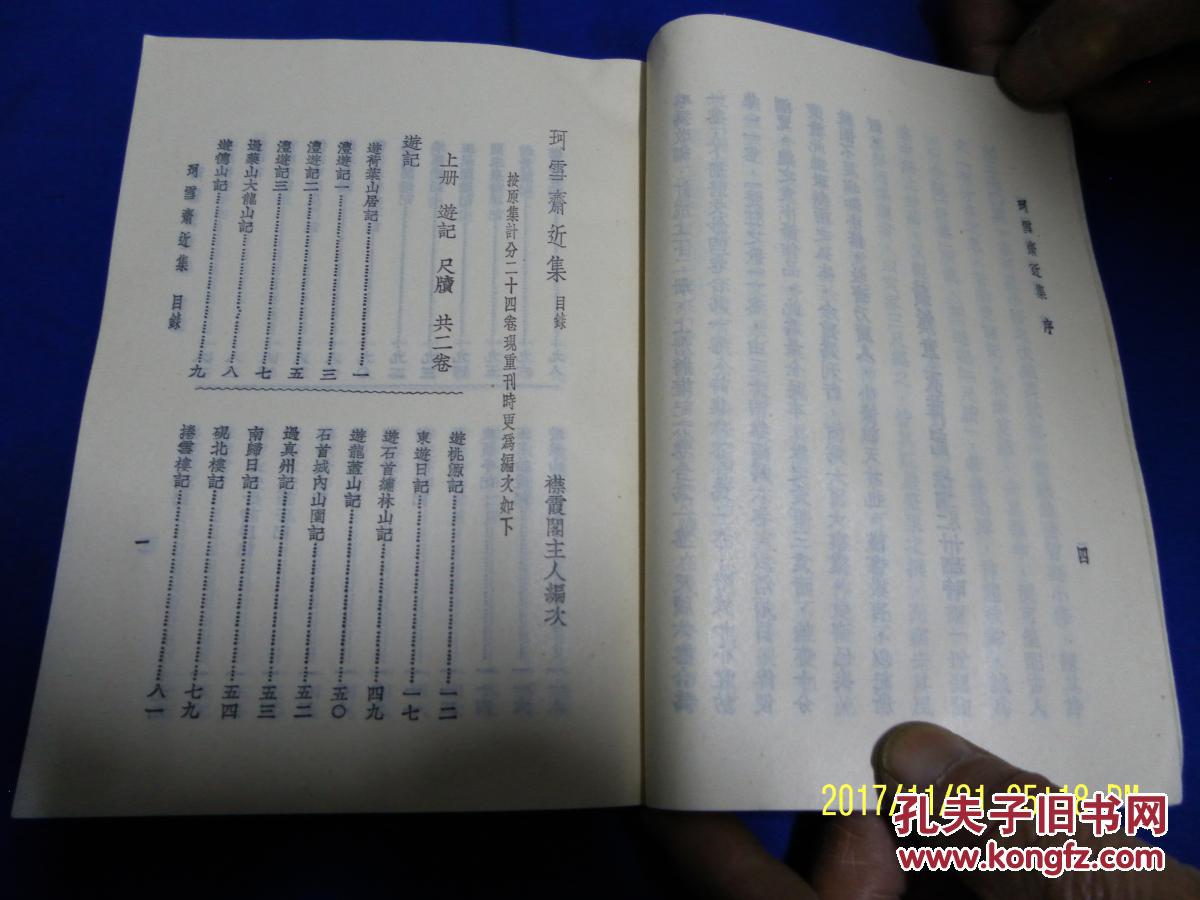 珂雪齋近集 序
四
珂雪齋近集 目錄
襟霞閣主人編次
按原集計分二十四卷現重刊時更爲編次如下
上册 遊記 尺牘 共二卷
遊記
遊荷葉山居記……一
澧遊記一……三
澧遊記二……五
澧遊記三……七
過藥山大龍山記……八
遊德山記……九
遊桃源記……一二
東遊日記……一七
遊石首繡林山記……四九
遊龍蓋山記……五〇
石首城內山園記……五二
過真州記……五三
南歸日記……五四
硯北樓記……七九
捲雪樓記……八一
珂雪齋近集 目錄
一
2017/11/21
孔夫子旧书网
www.kongfz.com